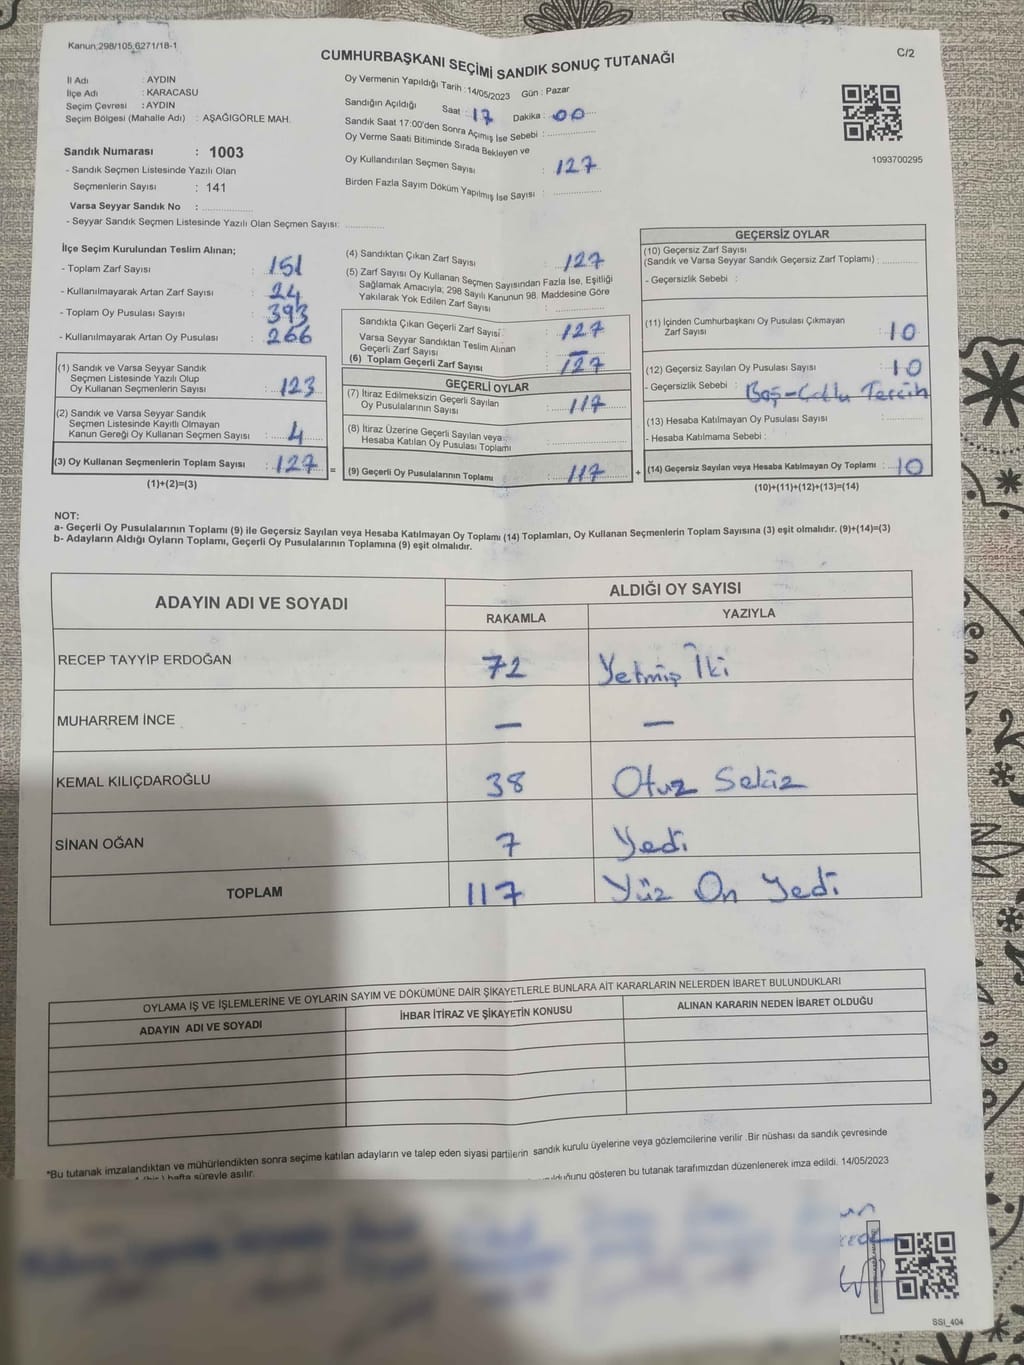 Kanun,298/105,6271/18-1
CUMHURBAŞKANI SEÇİMİ SANDIK SONUÇ TUTANAĞI
C/2
İl Adı : AYDIN
İlçe Adı : KARACASU
Seçim Çevresi : AYDIN
Seçim Bölgesi (Mahalle Adı) : AŞAĞIGÖRLE MAH.
Sandık Numarası : 1003
- Sandık Seçmen Listesinde Yazılı Olan
Seçmenlerin Sayısı : 141
Varsa Seyyar Sandık No : ....................
- Seyyar Sandık Seçmen Listesinde Yazılı Olan Seçmen Sayısı: ....................
Oy Vermenin Yapıldığı Tarih :14/05/2023 Gün : Pazar
Sandığın Açıldığı Saat : 17 Dakika : 00
Sandık Saat 17:00'den Sonra Açımış İse Sebebi : ....................
Oy Verme Saati Bitiminde Sırada Bekleyen ve
Oy Kullandırılan Seçmen Sayısı : 127
Birden Fazla Sayım Döküm Yapılmış İse Sayısı : ....................
1093700295
İlçe Seçim Kurulundan Teslim Alınan;
- Toplam Zarf Sayısı : 151
- Kullanılmayarak Artan Zarf Sayısı : 24
- Toplam Oy Pusulası Sayısı : 393
- Kullanılmayarak Artan Oy Pusulası : 266
(1) Sandık ve Varsa Seyyar Sandık
Seçmen Listesinde Yazılı Olup
Oy Kullanan Seçmenlerin Sayısı : 123
(2) Sandık ve Varsa Seyyar Sandık
Seçmen Listesinde Kayıtlı Olmayan
Kanun Gereği Oy Kullanan Seçmen Sayısı : 4
(3) Oy Kullanan Seçmenlerin Toplam Sayısı : 127 =
(1)+(2)=(3)
(4) Sandıktan Çıkan Zarf Sayısı : 127
(5) Zarf Sayısı Oy Kullanan Seçmen Sayısından Fazla İse, Eşitliği
Sağlamak Amacıyla; 298 Sayılı Kanunun 98. Maddesine Göre
Yakılarak Yok Edilen Zarf Sayısı : ....................
Sandıkta Çıkan Geçerli Zarf Sayısı : 127
Varsa Seyyar Sandıktan Teslim Alınan
Geçerli Zarf Sayısı : —
(6) Toplam Geçerli Zarf Sayısı : 127
GEÇERLİ OYLAR
(7) İtiraz Edilmeksizin Geçerli Sayılan
Oy Pusulalarının Sayısı : 117
(8) İtiraz Üzerine Geçerli Sayılan veya
Hesaba Katılan Oy Pusulası Toplamı : ....................
(9) Geçerli Oy Pusulalarının Toplamı : 117 +
GEÇERSİZ OYLAR
(10) Geçersiz Zarf Sayısı
(Sandık ve Varsa Seyyar Sandık Geçersiz Zarf Toplamı) : ..........
- Geçersizlik Sebebi :
(11) İçinden Cumhurbaşkanı Oy Pusulası Çıkmayan
Zarf Sayısı : 10
(12) Geçersiz Sayılan Oy Pusulası Sayısı : 10
- Geçersizlik Sebebi : Boş-Çoklu Tercih
(13) Hesaba Katılmayan Oy Pusulası Sayısı : ..........
- Hesaba Katılmama Sebebi :
(14) Geçersiz Sayılan veya Hesaba Katılmayan Oy Toplamı : 10
(10)+(11)+(12)+(13)=(14)
NOT:
a- Geçerli Oy Pusulalarının Toplamı (9) ile Geçersiz Sayılan veya Hesaba Katılmayan Oy Toplamı (14) Toplamları, Oy Kullanan Seçmenlerin Toplam Sayısına (3) eşit olmalıdır. (9)+(14)=(3)
b- Adayların Aldığı Oyların Toplamı, Geçerli Oy Pusulalarının Toplamına (9) eşit olmalıdır.
ADAYIN ADI VE SOYADI
ALDIĞI OY SAYISI
RAKAMLA YAZIYLA
RECEP TAYYİP ERDOĞAN 72 Yetmiş İki
MUHARREM İNCE — —
KEMAL KILIÇDAROĞLU 38 Otuz Sekiz
SİNAN OĞAN 7 Yedi
TOPLAM 117 Yüz On Yedi
OYLAMA İŞ VE İŞLEMLERİNE VE OYLARIN SAYIM VE DÖKÜMÜNE DAİR ŞİKAYETLERLE BUNLARA AİT KARARLARIN NELERDEN İBARET BULUNDUKLARI
ADAYIN ADI VE SOYADI
İHBAR İTİRAZ VE ŞİKAYETİN KONUSU
ALINAN KARARIN NEDEN İBARET OLDUĞU
*Bu tutanak imzalandıktan ve mühürlendikten sonra seçime katılan adayların ve talep eden siyasi partilerin sandık kurulu üyelerine veya gözlemcilerine verilir .Bir nüshası da sandık çevresinde
hafta süreyle asılır.
gösteren bu tutanak tarafımızdan düzenlenerek imza edildi. 14/05/2023
SSI_404